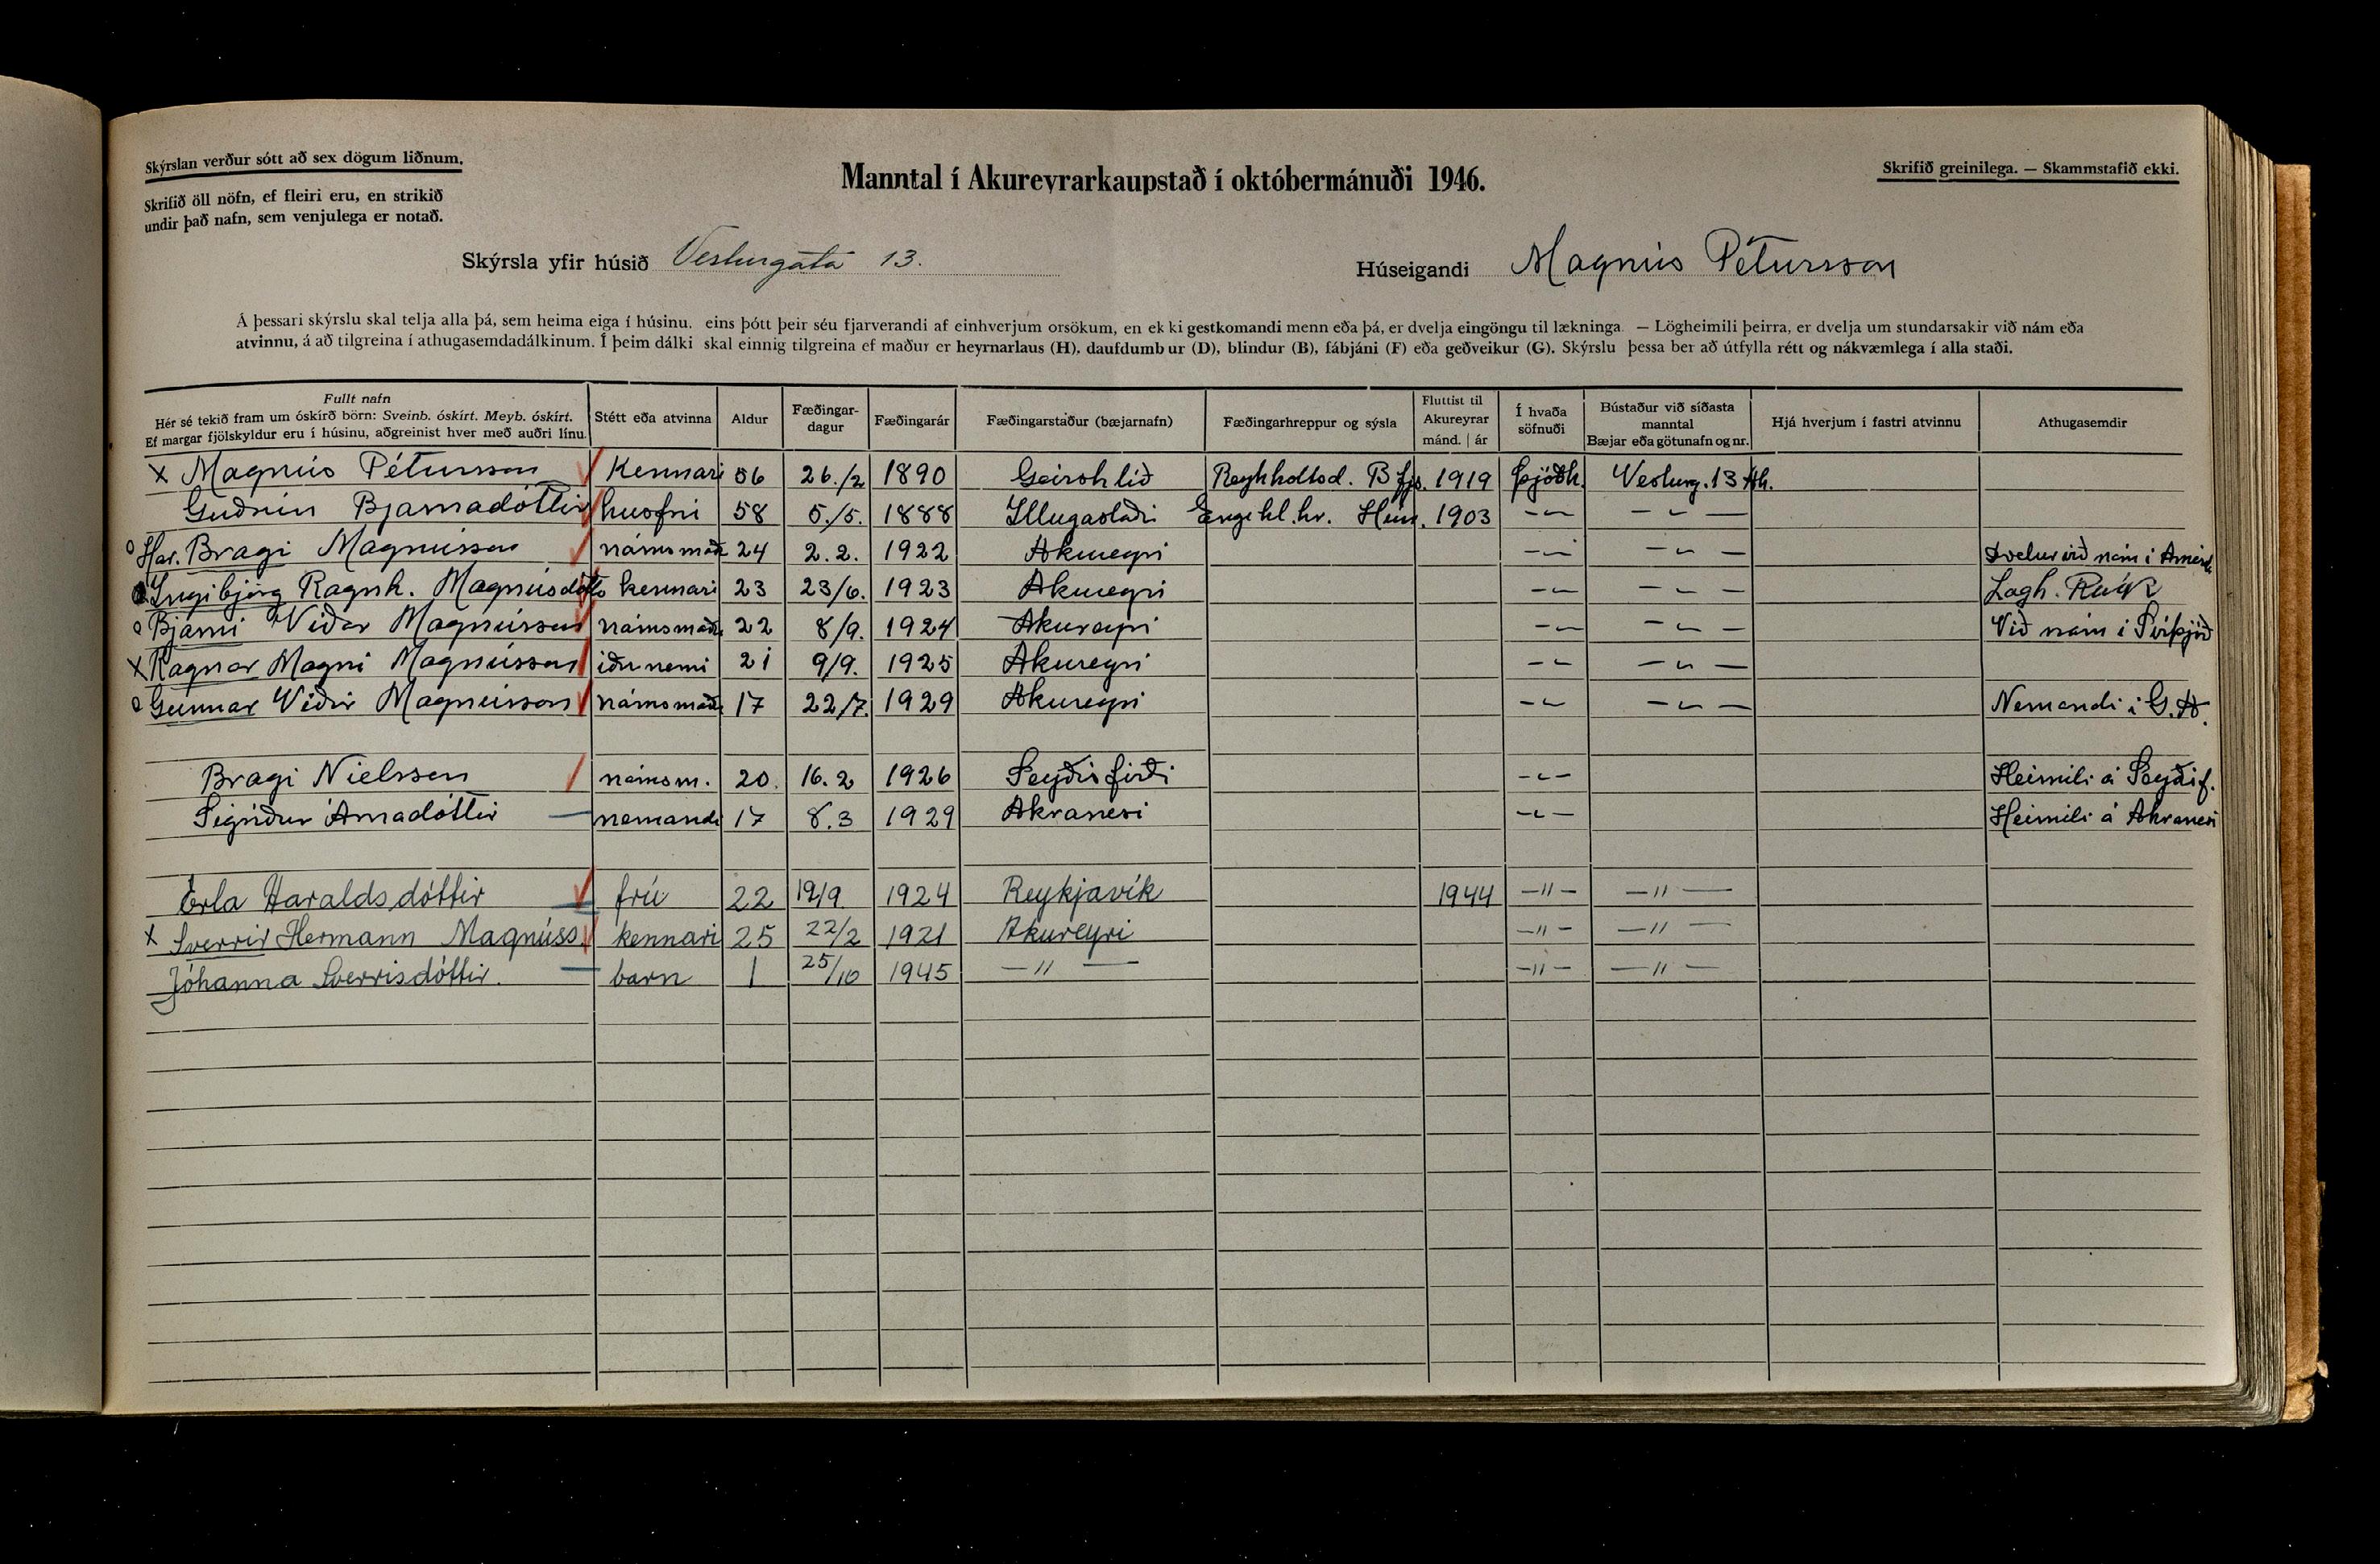 Skýrslan verður sótt að sex dögum liðnum.
Skrifið öll nöfn, ef fleiri eru, en strikið
undir það nafn, sem venjulega er notað.
Manntal í Akureyrarkaupstað í októbermánuði 1946.
Skrifið greinilega. — Skammstafið ekki.
Skýrsla yfir húsið Vesturgata 13.
Húseigandi Magnús Pétursson
Á þessari skýrslu skal telja alla þá, sem heima eiga í húsinu, eins þótt þeir séu fjarverandi af einhverjum orsökum, en ekki gestkomandi menn eða þá, er dvelja eingöngu til lækninga. — Lögheimili þeirra, er dvelja um stundarsakir við nám eða
atvinnu, á að tilgreina í athugasemdadálkinum. Í þeim dálki skal einnig tilgreina ef maður er heyrnarlaus (H), daufdumbur (D), blindur (B), fábjáni (F) eða geðveikur (G). Skýrslu þessa ber að útfylla rétt og nákvæmlega í alla staði.
Fullt nafn
Hér sé tekið fram um óskírð börn: Sveinb. óskírt. Meyb. óskírt.
Ef margar fjölskyldur eru í húsinu, aðgreinist hver með auðri línu.
Stétt eða atvinna
Aldur
Fæðingar-
dagur
Fæðingarár
Fæðingarstaður (bæjarnafn)
Fæðingarhreppur og sýsla
Fluttist til
Akureyrar
mánd. | ár
Í hvaða
söfnuði
Bústaður við síðasta
manntal
Bæjar eða götunafn og nr.
Hjá hverjum í fastri atvinnu
Athugasemdir
x Magnús Pétursson Kennari 56 26./2 1890 Geirshlíð Reykholtsd. Bfjs. 1919 Þjóðk. Vesturg. 13 Ak.
Guðrún Bjarnadóttir húsfrú 58 5./5. 1888 Illugastaði Engihl.hr. Hún. 1903 -〃- -〃-
o Har. Bragi Magnússon námsmaður 24 2.2. 1922 Akureyri -〃- -〃- Dvelur við nám í
Ingibjörg Ragnh. Magnúsdótt. kennari 23 23/6. 1923 Akureyri -〃- -〃- Lögh. Rvík
o Bjarni Viðar Magnússon námsmaður 22 8/9. 1924 Akureyri -〃- -〃- Við nám í Svíþjóð
x Ragnar Magni Magnússon iðnnemi 21 9/9. 1925 Akureyri -〃- -〃-
o Gunnar Víðir Magnússon námsmaður 17 22/7. 1929 Akureyri -〃- -〃- Nemandi í G.A.
Bragi Nielssen námsm. 20. 16.2 1926 Seyðisfirði -〃- Heimili á Seyðisf.
Sigríður Árnadóttir nemandi 17 8.3 1929 Akranesi -〃- Heimili á Akranesi
Erla Haraldsdóttir frú 22 19/9 1924 Reykjavík 1944 -〃- -〃-
x Sverrir Hermann Magnúss. kennari 25 22/2 1921 Akureyri -〃- -〃-
Jóhanna Sverrisdóttir. barn 1 25/10 1945 -〃- -〃- -〃-